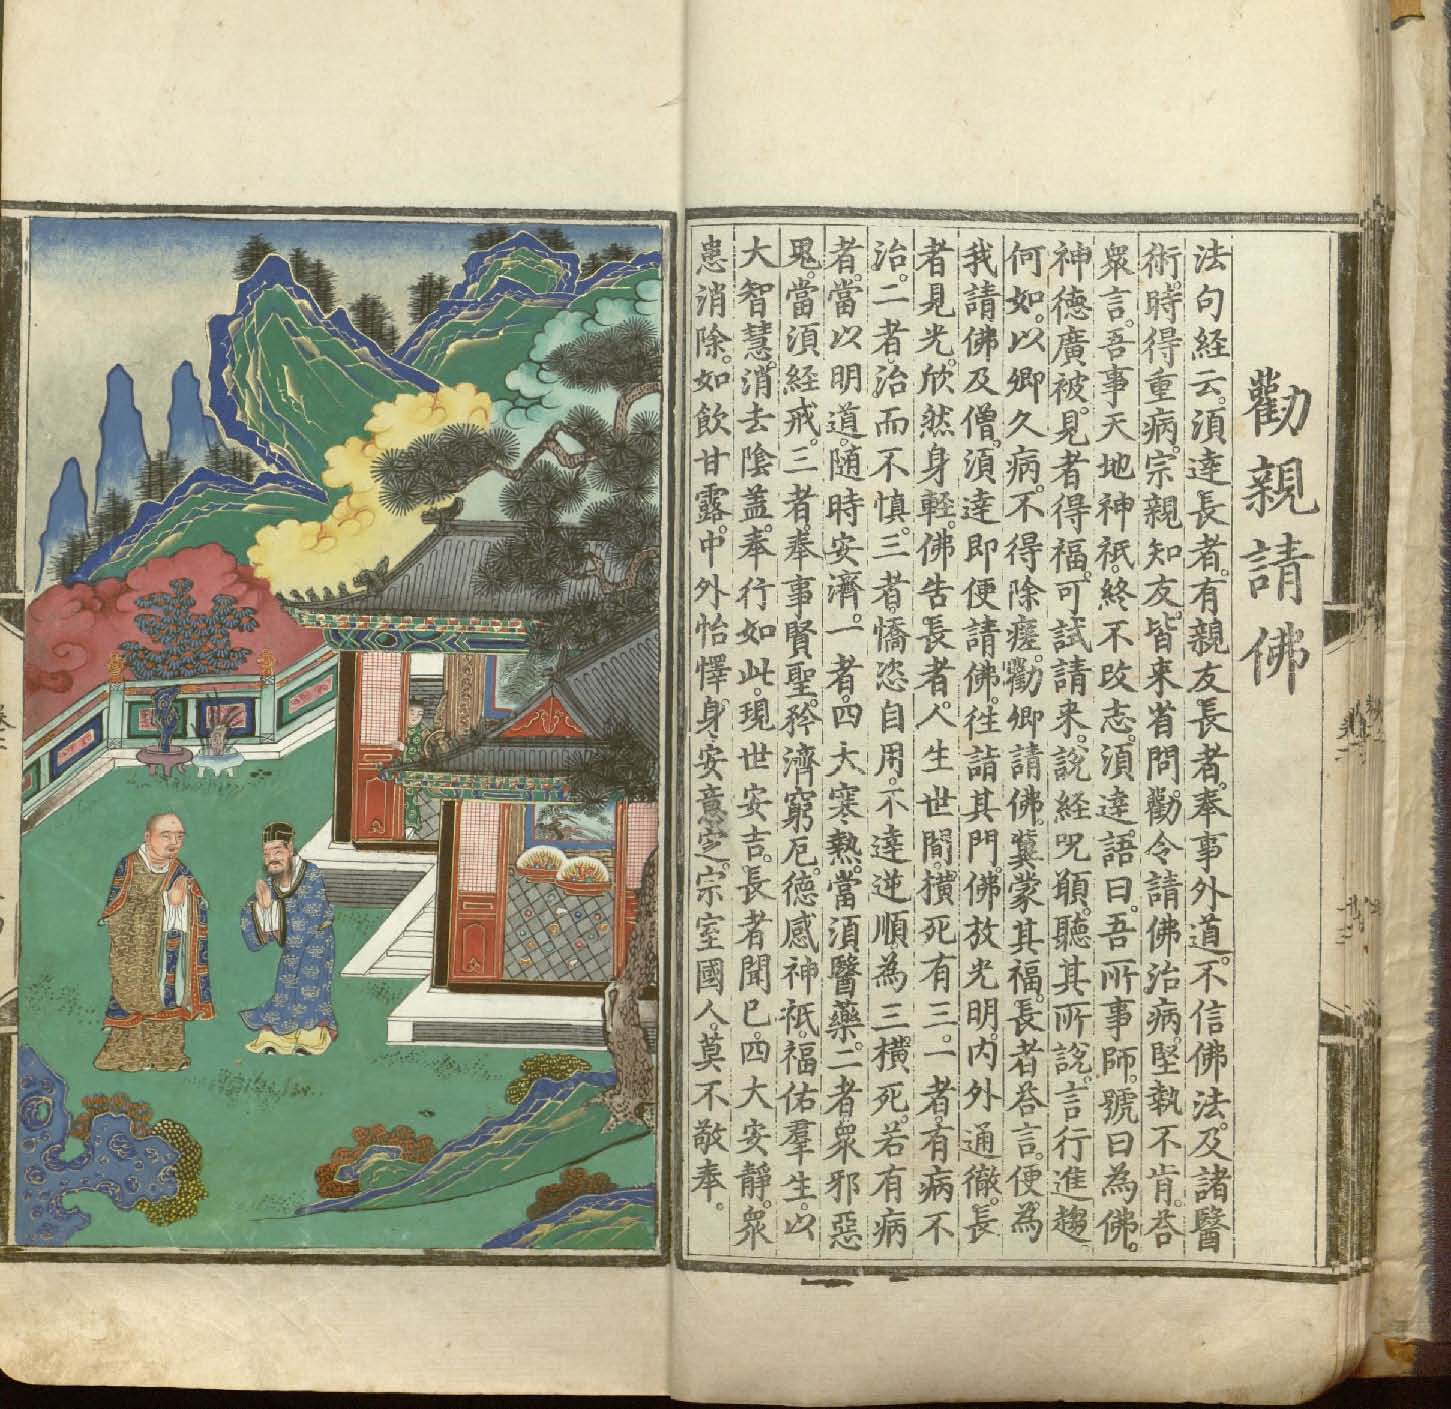 勸親請佛
法句經云。須達長者。有親友長者。奉事外道。不信佛法。及諸醫
術。時得重病。宗親知友。皆來省問。勸令請佛治病。堅執不肯。荅
衆言。吾事天地神祇。終不改志。須達語曰。吾所事師。號曰為佛。
神德廣被。見者得福。可試請来。說經呪願。聽其所說。言行進趨。
何如。以卿久病。不得除瘥。勸卿請佛。冀蒙其福。長者荅言。便為
我請佛及僧。須達即便請佛。徃詣其門。佛放光明。内外通徹。長
者見光。欣然身輕。佛告長者。人生世間。橫死有三。一者。有病不
治。二者治而不慎。三者。憍恣自用。不達逆順。為三橫死。若有病
者。當以明道。随時安濟。一者。四大寒熱。當須醫藥。二者衆邪惡
鬼。當須經戒。三者。奉事賢聖。矜濟窮厄。德感神祇。福佑羣生。以
大智慧。消去陰蓋。奉行如此。現世安吉。長者聞已。四大安靜。衆
患消除。如飲甘露。中外怡懌。身安意定。宗室國人。莫不敬奉。